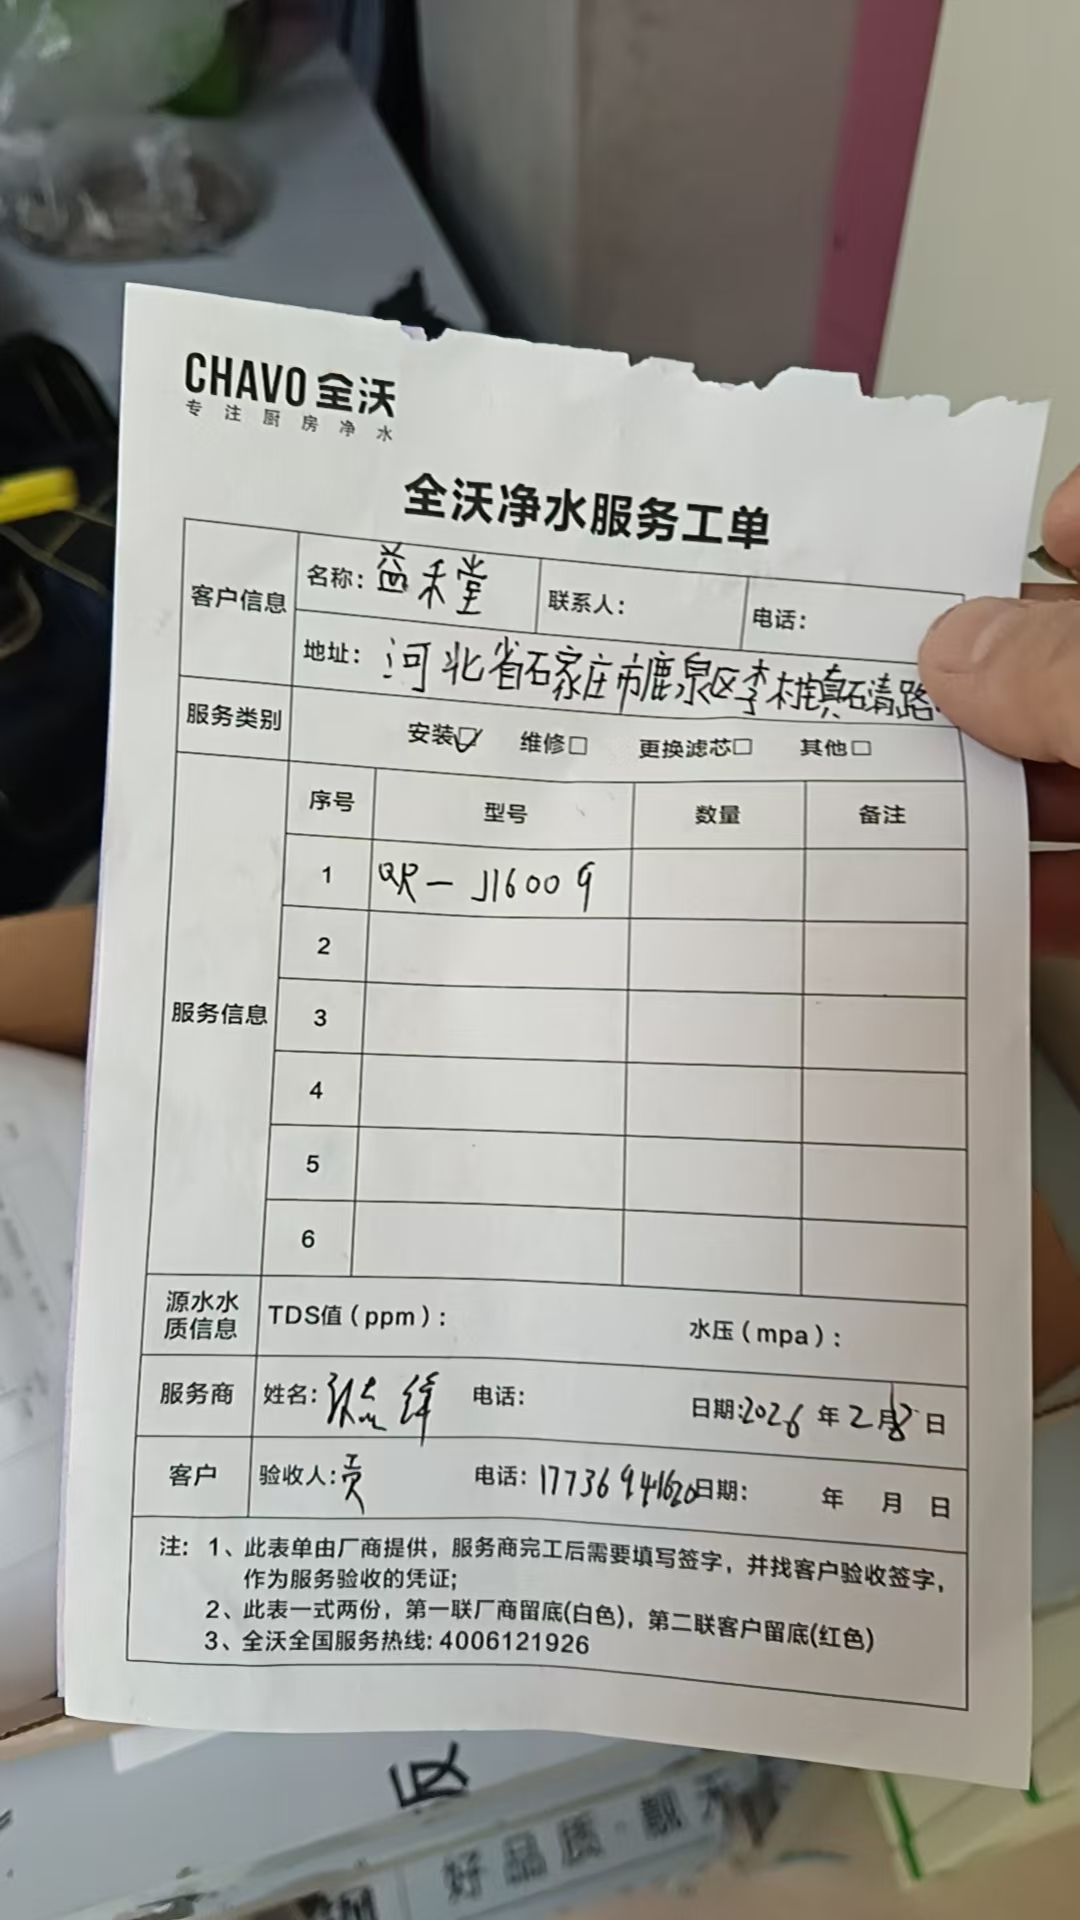 CHAVO 全沃
专注厨房净水
全沃净水服务工单
客户信息
名称：益禾堂 联系人： 电话：
地址：河北省石家庄市鹿泉区李村镇真石清路
服务类别 安装☑ 维修□ 更换滤芯□ 其他□
服务信息
序号 型号 数量 备注
1 QR-J1600G
2
3
4
5
6
源水水质信息 TDS值（ppm）： 水压（mpa）：
服务商 姓名：张志 电话： 日期：2026年2月8日
客户 验收人：贡 电话：17736941620 日期： 年 月 日
注：1、此表单由厂商提供，服务商完工后需要填写签字，并找客户验收签字，
作为服务验收的凭证；
2、此表一式两份，第一联厂商留底(白色)，第二联客户留底(红色)
3、全沃全国服务热线：4006121926
好品质·靓